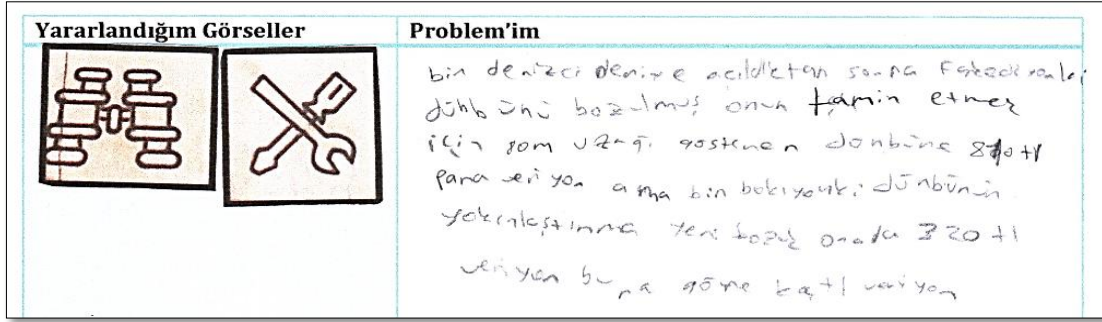 Yararlandığım Görseller
Problem'im
bir denizci denize açıldıktan sonra Farkediyorki
dünbünü bozulmuş onun tamin etmek
için 80m uzağı gösteren dünbüne 870 tl
para veriyor ama bir bakıyorki dünbünün
yakınlaştırma yeri bozuk onada 320 tl
veriyor buna göre kaç tl veriyor